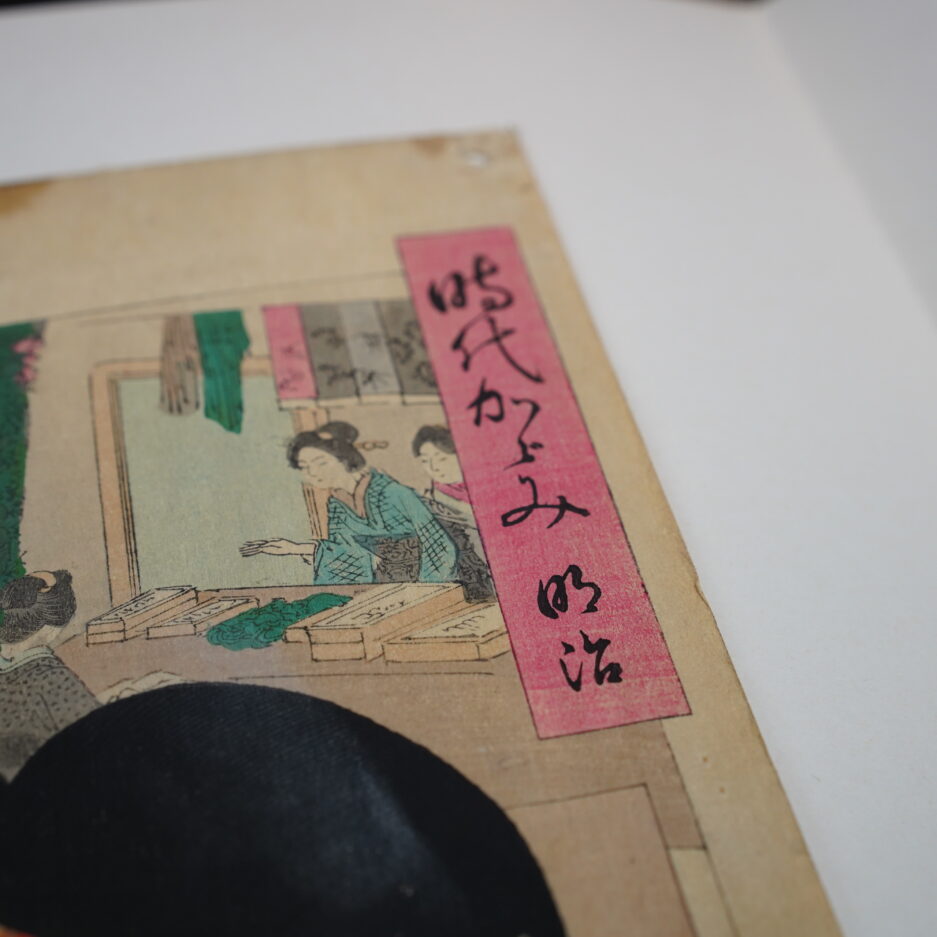 時代かゞみ 明治